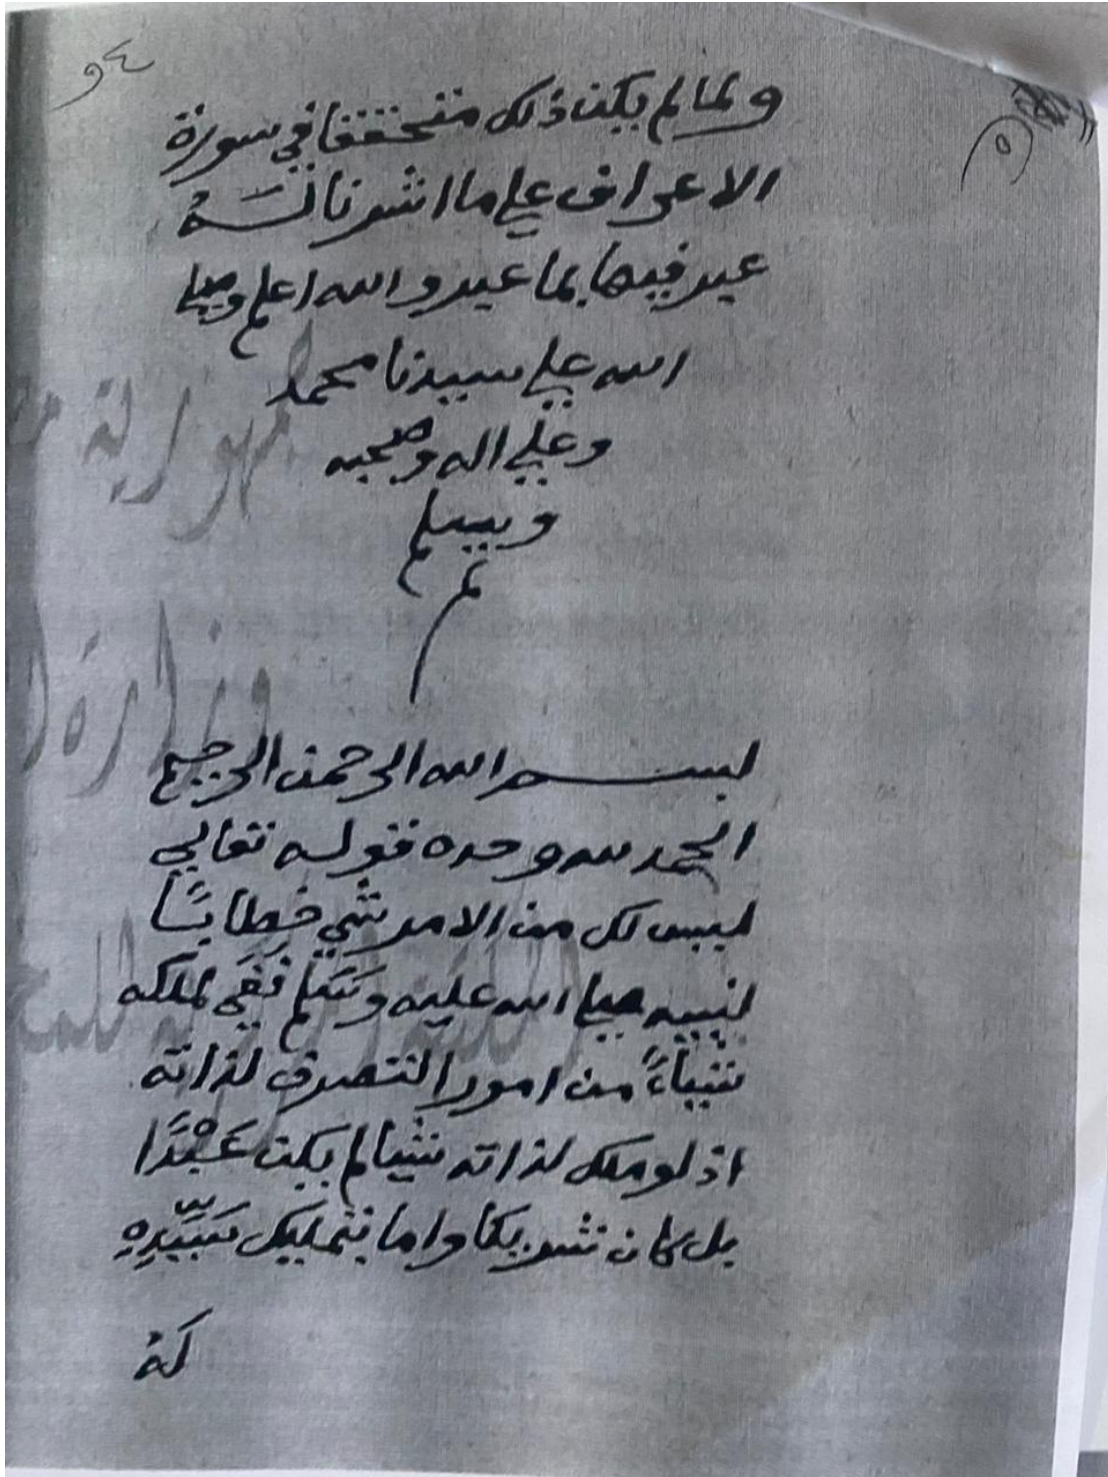 ولما لم يكن ذلك متحققا في سورة
الاعراف علي ما اشرنا لَهُ
عبر فيها بما عبر والله اعلم وصلي
الله علي سيدنا محمد
وعلي اله وصحبه
وسلم
تم
بسم الله الرحمن الرحيم
الحمد لله وحده قوله تعالي
ليس لك من الامر شي خطابًا
لنبيه صلي الله عليه وسَلم نفَي لملكه
شياءً من امور التصرف لذاته
اذ لو ملك لذاته شيا لم يكن عَبْدًا
بل كان شريكا واما بتمليك سَيّدِهِ
لَهُ
جمهورية
وزارة ا